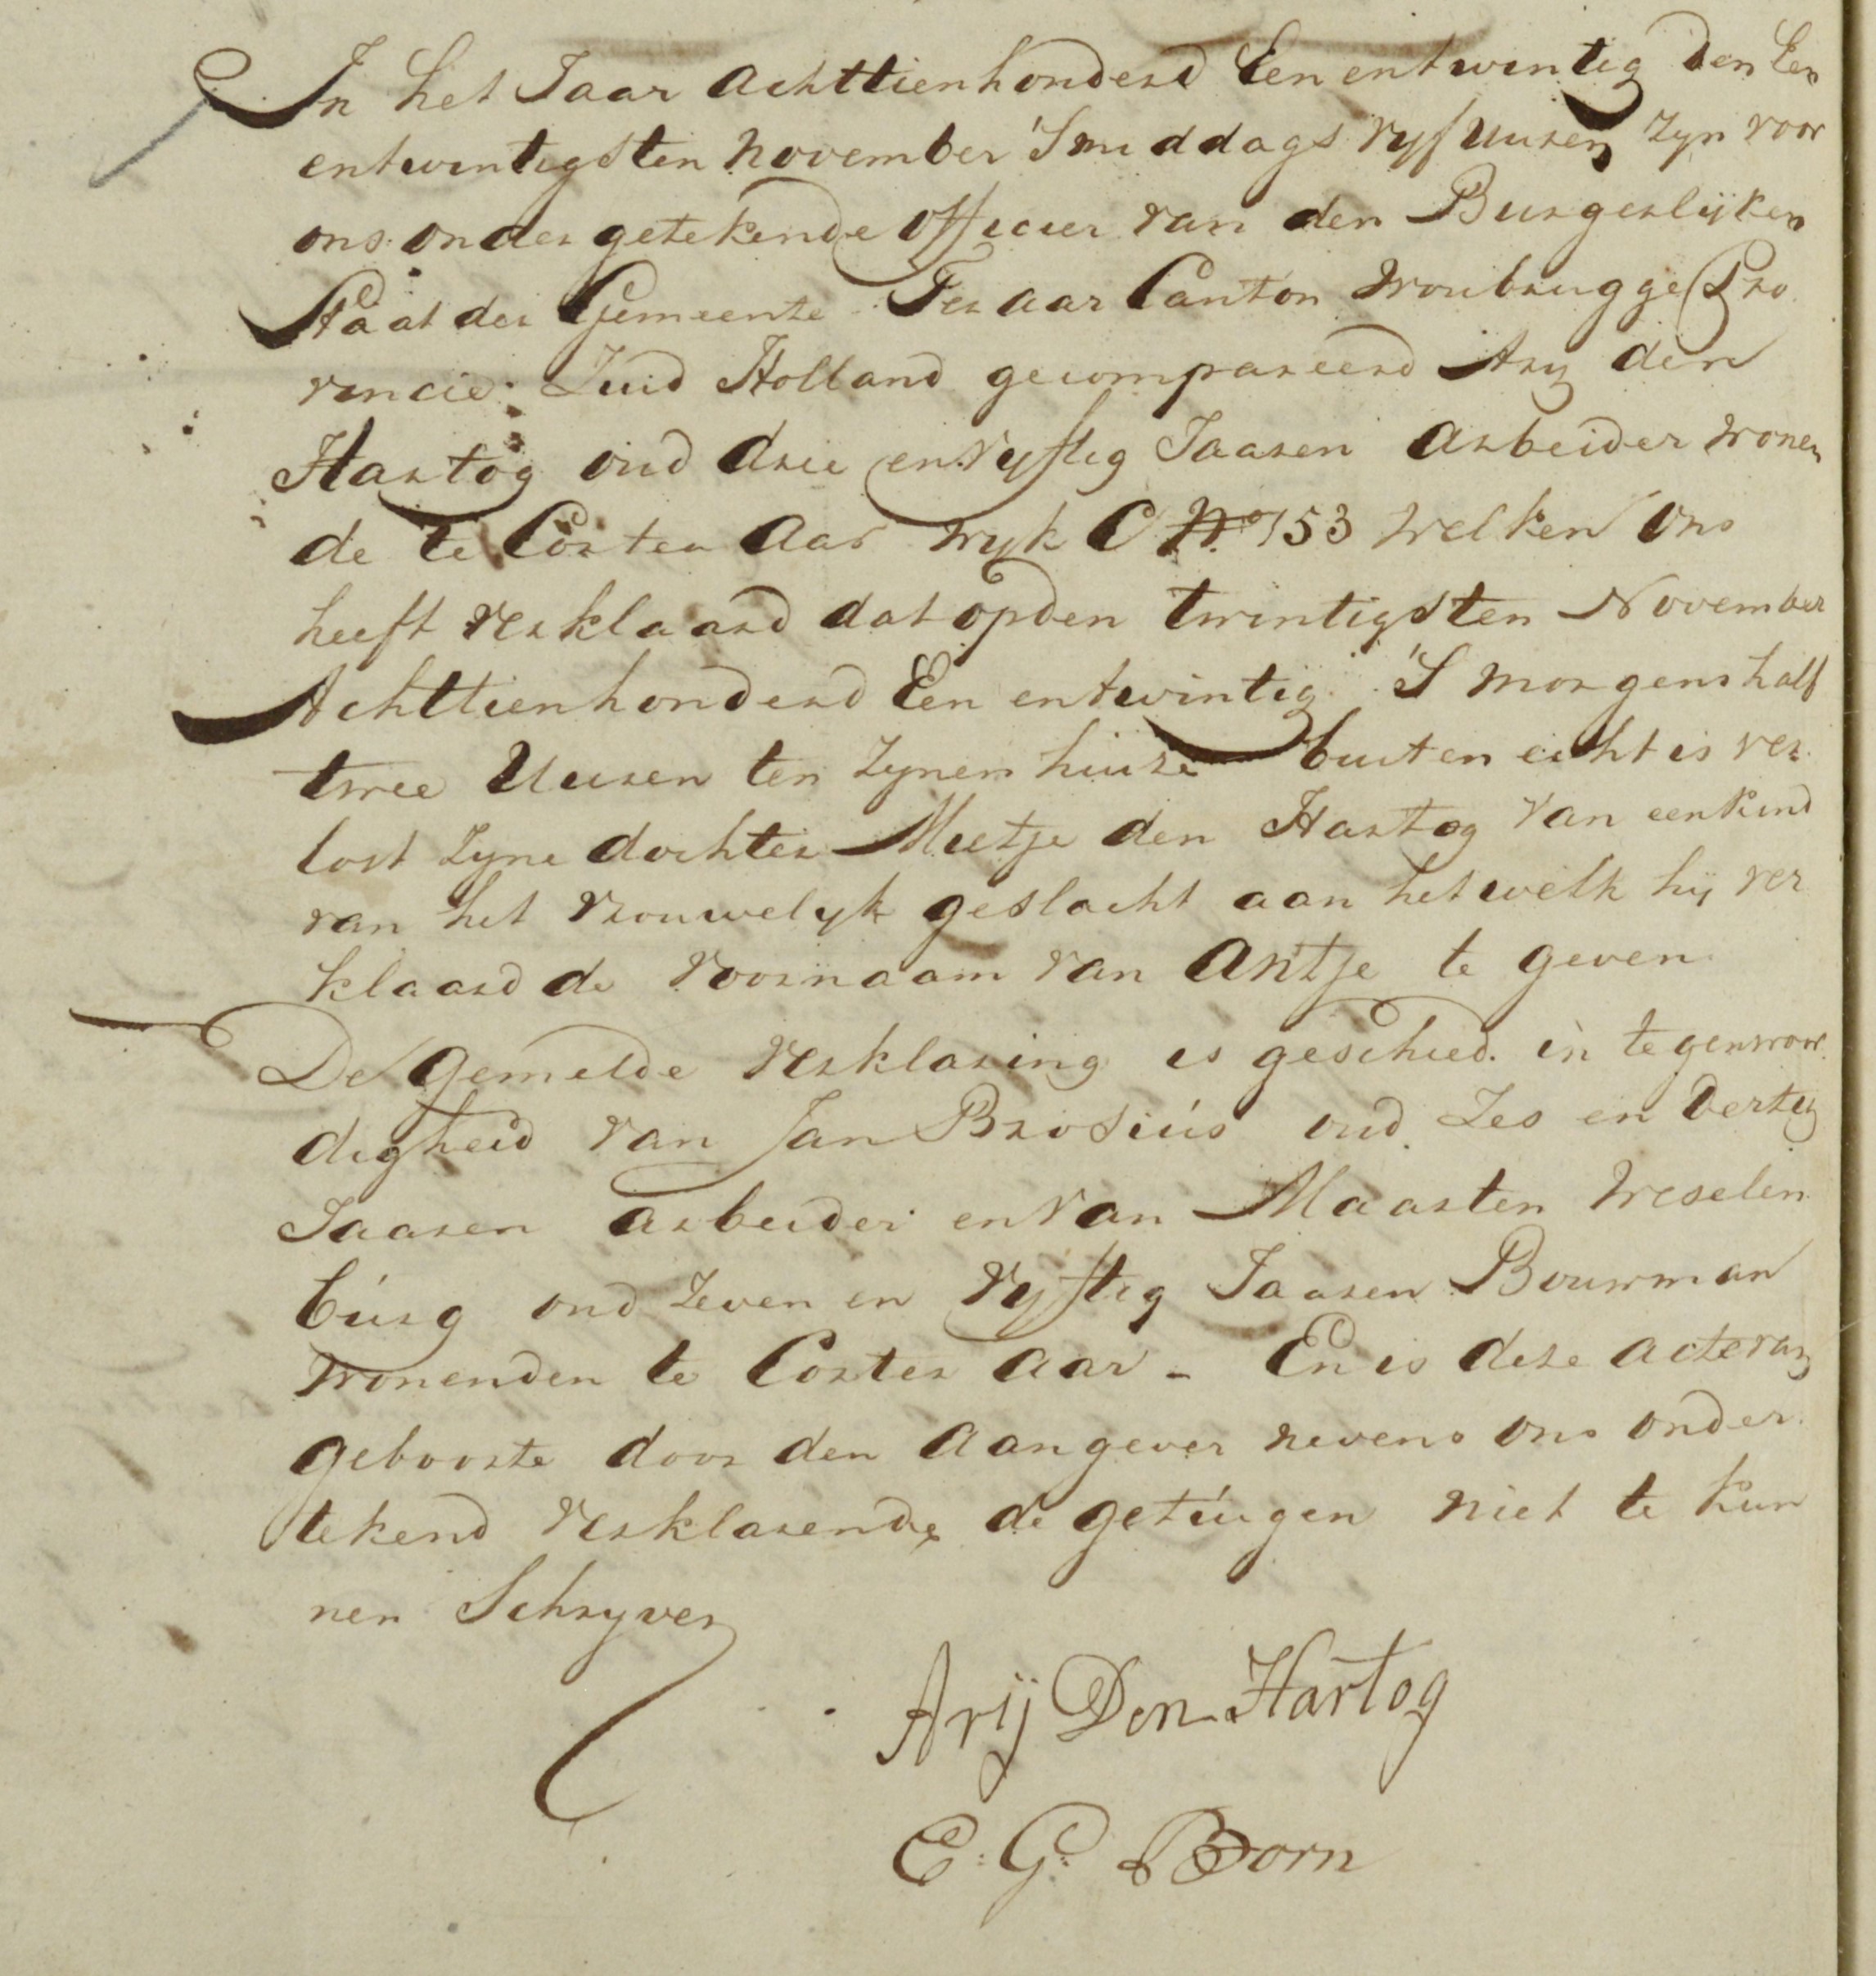 In het Jaar Achttienhonderd Een entwintig den Een
entwintigsten November 'S middags vyf Uuren zyn voor
ons ondergetekende Officier van den Burgerlijken
Staat der Gemeente Ter aar Canton Woubrugge Pro
vincie Zuid Holland gecompareerd Ary den
Hartog oud drie en vyftig Jaaren Arbeider wonen
de te Corter Aar wyk C N.o 153 Welken Ons
heeft verklaard dat op den twintigsten November
Achttienhonderd Een entwintig 'S morgens half
twee Uuren ten zynen huize buiten echt is ver
lost zyne dochter Meetje den Hartog van een kind
van het vrouwelyk geslacht aan het welk hij ver
klaard de voornaam van Antje te geven
De Gemelde verklaring is geschied in tegenwoor
digheid van Jan Brosius oud Zes en dertig
Jaaren arbeider en van Maarten Weselen
burg oud zeven en vyftig Jaaren Bouwman
wonenden te Corter Aar - En is deze acte van
geboorte door den Aangever nevens Ons onder
tekend verklarende de getuigen niet te kun
nen Schryven
Arij Den Hartog
E: G: Born